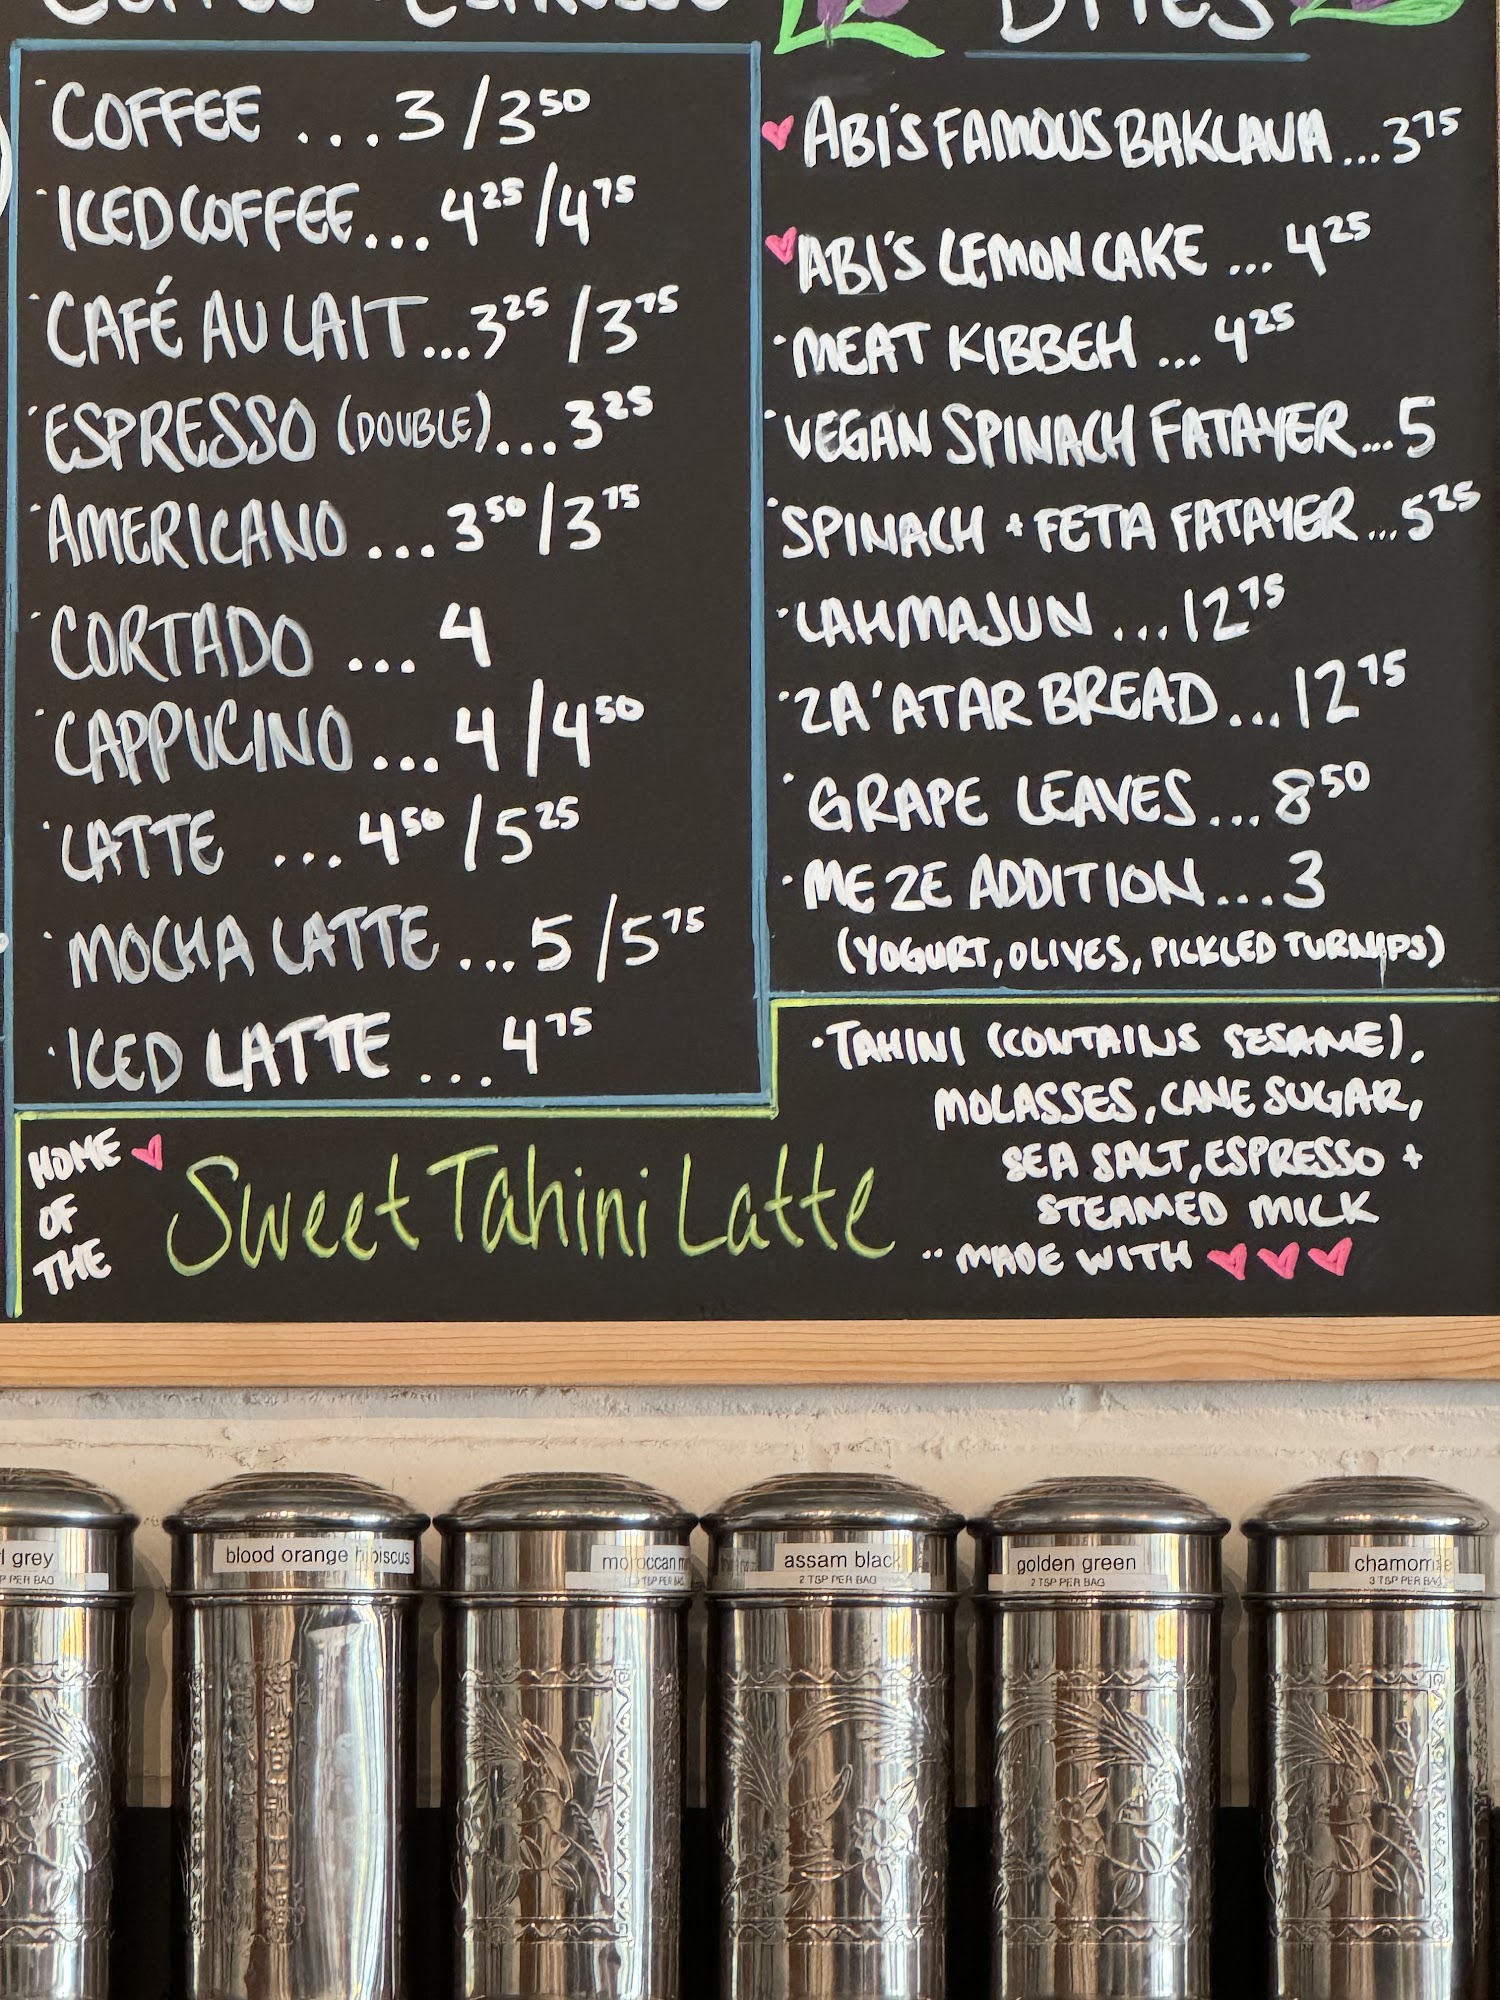 COFFEE + ESPRESSO
BITES
· COFFEE ... 3 / 3 50
· ICED COFFEE ... 4 25 / 4 75
· CAFÉ AU LAIT ... 3 25 / 3 75
· ESPRESSO (DOUBLE) ... 3 25
· AMERICANO ... 3 50 / 3 75
· CORTADO ... 4
· CAPPUCINO ... 4 / 4 50
· LATTE ... 4 50 / 5 25
· MOCHA LATTE ... 5 / 5 75
· ICED LATTE ... 4 75
♥ ABI'S FAMOUS BAKLAVA ... 3 75
♥ ABI'S LEMON CAKE ... 4 25
· MEAT KIBBEH ... 4 25
· VEGAN SPINACH FATAYER ... 5
· SPINACH + FETA FATAYER ... 5 25
· LAHMAJUN ... 12 75
· ZA'ATAR BREAD ... 12 75
· GRAPE LEAVES ... 8 50
· MEZE ADDITION ... 3
(YOGURT, OLIVES, PICKLED TURNIPS)
HOME ♥
OF
THE
Sweet Tahini Latte
· TAHINI (CONTAINS SESAME),
MOLASSES, CANE SUGAR,
SEA SALT, ESPRESSO +
STEAMED MILK
·· MADE WITH ♥ ♥ ♥
grey
PER BAG
blood orange hibiscus
moroccan
TSP PER BAG
assam black
2 TSP PER BAG
golden green
2 TSP PER BAG
chamomile
3 TSP PER BAG